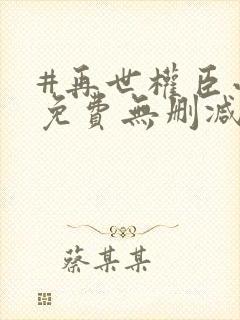 #再世權臣
免費無刪減
蔡某某